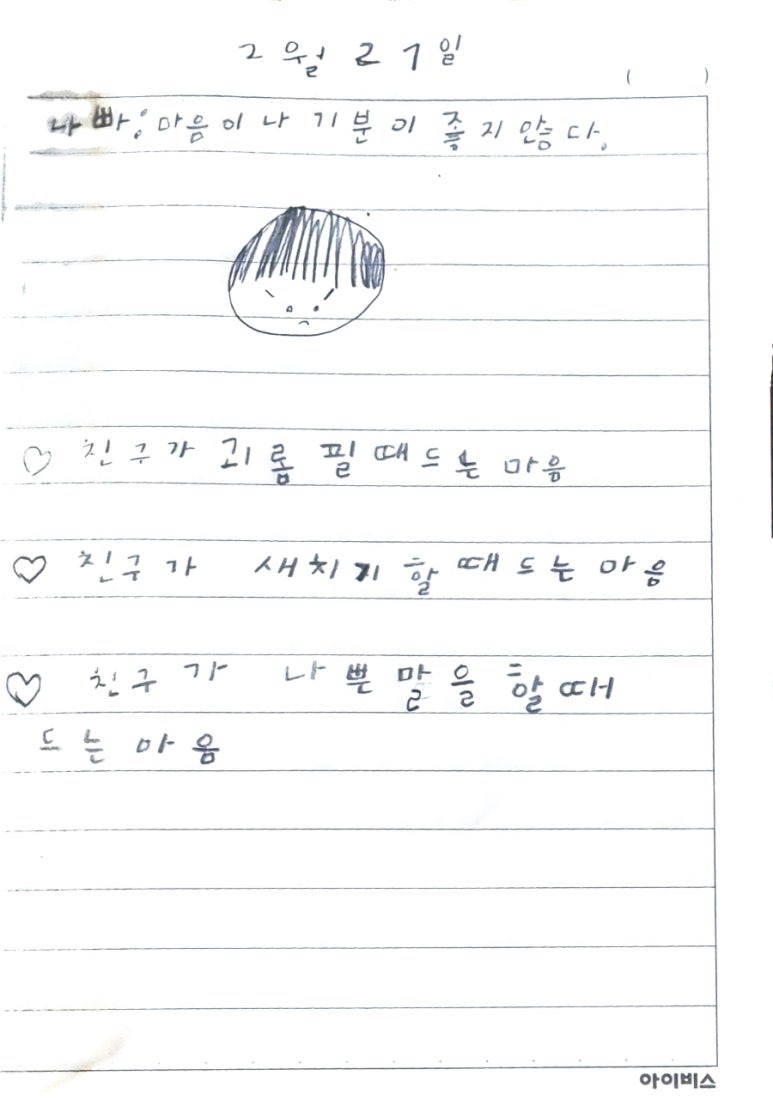 2월 21일
( )
나빠: 마음이나 기분이 좋지않다.
♡ 친구가 괴롭필때드는 마음
♡ 친구가 새치기 할때드는 마음
♡ 친구가 나쁜말을 할때
드는 마음
아이비스